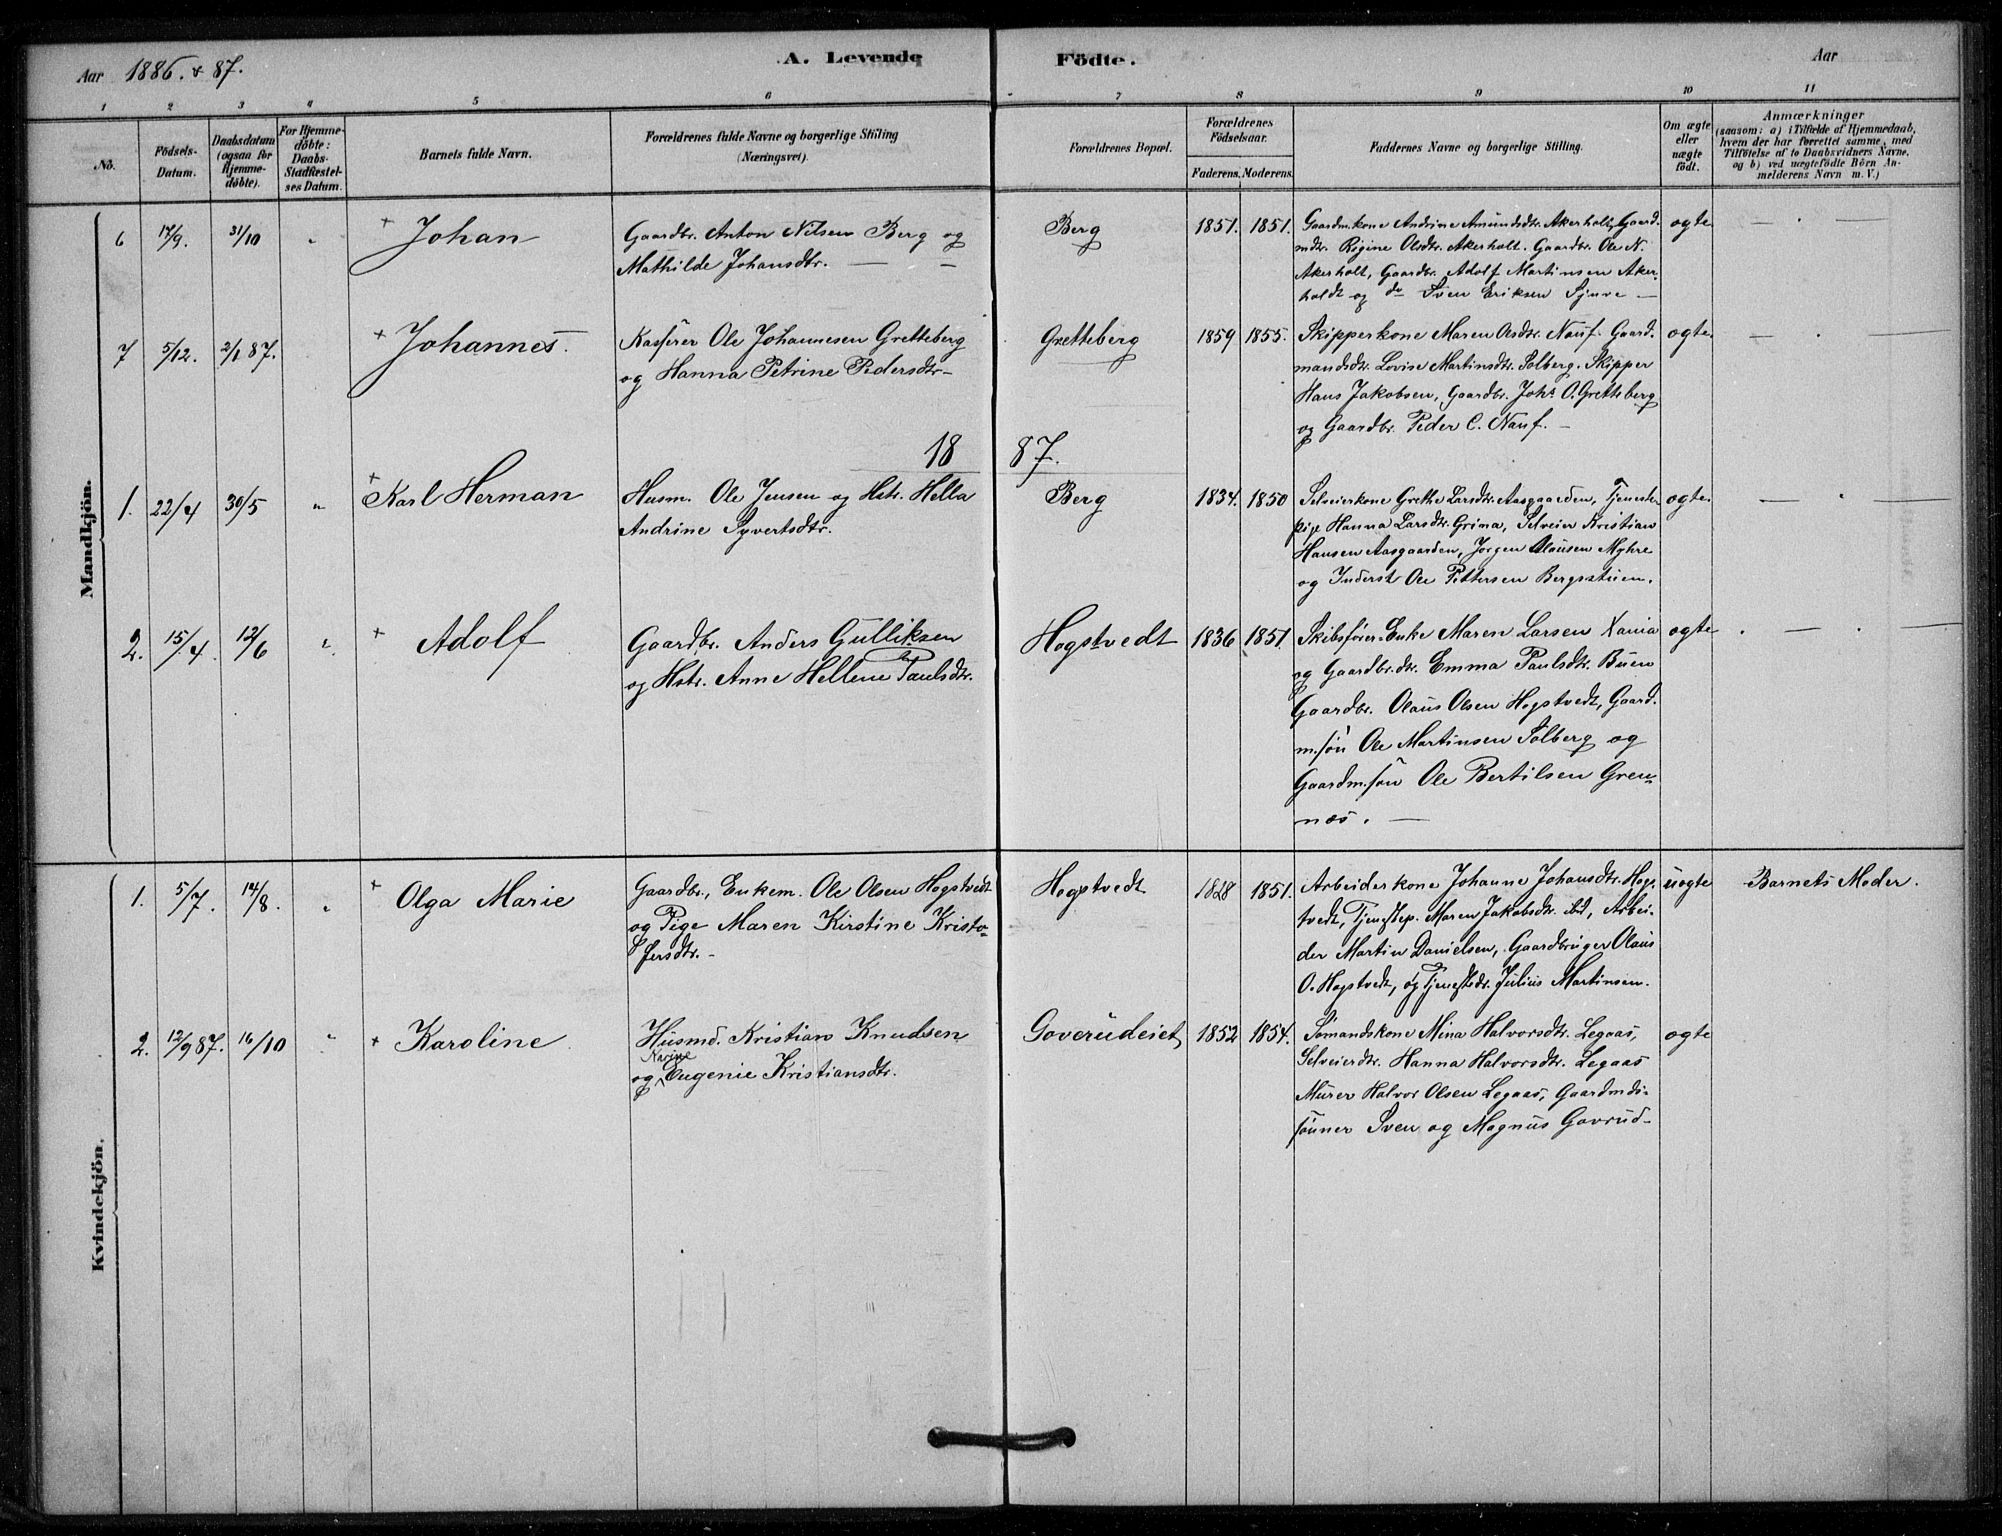 Aar 1886. & 87.
A. Levende Födte.
Aar
1 2 3 4 5 6 7 8 9 10 11
Nō.
Födsels-Datum.
Daabsdatum (ogsaa for Hjemme-döbte).
For Hjemme-döbte: Daabs-Stadfæstel-ses Datum.
Barnets fulde Navn.
Forældrenes fulde Navne og borgerlige Stilling (Næringsvei).
Forældrenes Bopæl.
Forældrenes Födselsaar.
Faderens. Moderens.
Faddernes Navne og borgerlige Stilling.
Om ægte eller uægte födt.
Anmærkninger
(saasom: a) i Tilfælde af Hjemmedaab,
hvem der har forrettet samme, med
Tilföielse af to Daabsvidners Navne,
og b) ved uægtefödte Börn An-
melderens Navn m. V.)
Mandkjön.
6 17/9. 31/10 " + Johan
Gaardbr. Anton Nilsen Berg og
Mathilde Johansdtr. — —
Berg 1851. 1851.
Gaardm.kone Andrine Amundsdtr. Akerholt, Gaard-
mdtr. Regine Olsdtr. Akerholt. Gaardbr. Ole N.
Akerholt, Gaardbr. Adolf Martinsen Aker-
holdt og do Sven Eriksen Synve —
ægte — . —
7 5/12. 2/1 87. + Johannes.
Kasserer Ole Johannesen Gretteberg
og Hanna Petrine Pedersdtr-
Gretteberg 1859 1855.
Skipperkone Maren Olsdtr. Nauf. Gaard-
mandsdtr. Lovise Martinsdtr. Solberg. Skipper
Hans Jakobsen, Gaardbr. Johs O. Gretteberg
og Gaardbr. Peder C. Nauf. —
ægte. — . —
18 87.
1. 22/4 30/5 " + Karl Herman
Husm. Ole Jensen og Hstr. Hella
Andrine Syvertsdtr.
Berg 1834. 1850
Selveierkone Grethe Larsdtr. Aasgaarden, Tjeneste-
pige Hanna Larsdtr. Grina, Selveier Kristian
Hansen Aasgaarden, Jørgen Olausen Myhre
og Inderst Ole Pettersen Bergsstuen.
ægte. — . —
2. 15/4 12/6 " + Adolf
Gaardbr. Anders Gulliksen
og Hstr. Anne Hellene Paulsdtr.
Hogstvedt 1836 1851.
Skibsfører-Enke Maren Larsen Xania
og Gaardbr.dtr. Emma Paulsdtr. Buen
Gaardbr. Olaus Olsen Hogstvedt, Gaard-
m.søn Ole Martinsen Solberg og
Gaardm.søn Ole Bertilsen Gren-
næs. —
ægte . — . —
Kvindekjön.
1. 5/7. 14/8. " + Olga Marie
Gaardbr., Enkem. Ole Olsen Hogstvedt
og Pige Maren Kirstine Kristo-
fersdtr. -
Hogstvedt 1828 1851.
Arbeiderkone Johanne Johansdtr. Hogs-
tvedt, Tjenestep. Maren Jakobsdtr. ibid, Arbei-
der Martin Danielsen, Gaardbruger Olaus
O. Hogstvedt, og Tjenestdr. Julius Martinsen.
uægte Barnets Moder.
2. 12/9 87. 16/10 " + Karoline
Husmd. Kristian Knudsen
Karine
og Eugenie Kristiansdtr.
Goverudeiet 1852 1854.
Sømandskone Mina Halvorsdtr. Legaas,
Selveierdtr. Hanna Halvorsdtr. Legaas
Murer Halvor Olsen Legaas, Gaardmds-
sønner Sven og Magnus Govrud-
ægte